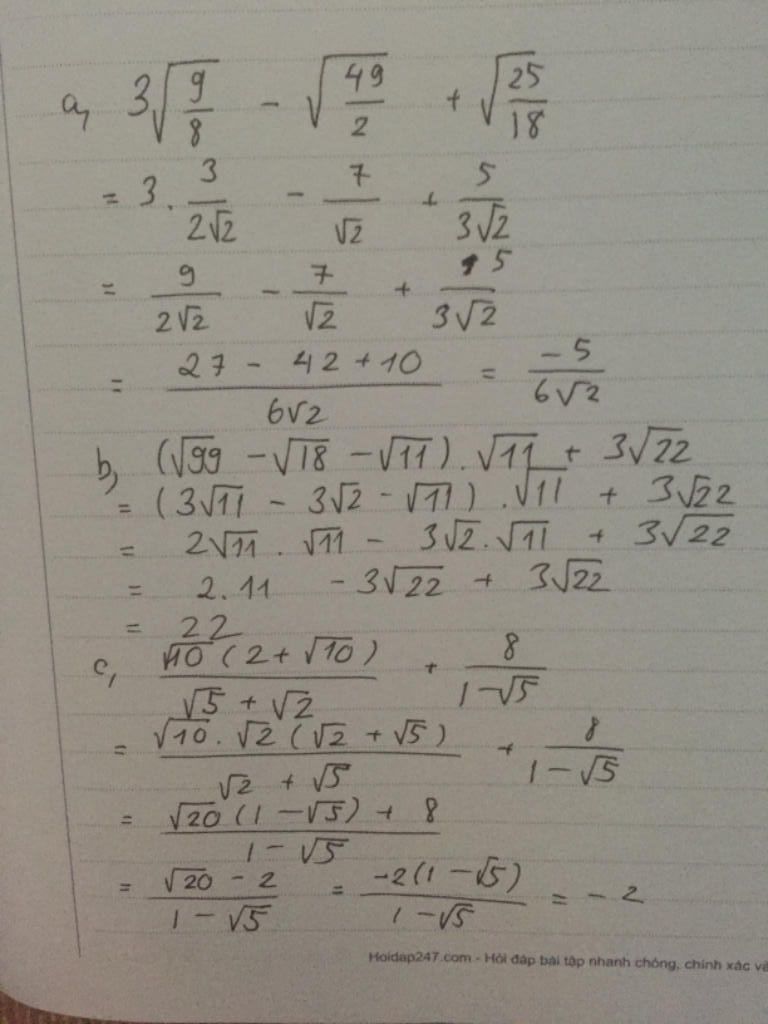 a, 3√(9/8) - √(49/2) + √(25/18)
= 3 . 3/(2√2) - 7/√2 + 5/(3√2)
= 9/(2√2) - 7/√2 + 5/(3√2)
= (27 - 42 + 10)/(6√2) = -5/(6√2)
b, (√99 - √18 - √11) . √11 + 3√22
= (3√11 - 3√2 - √11) . √11 + 3√22
= 2√11 . √11 - 3√2 . √11 + 3√22
= 2 . 11 - 3√22 + 3√22
= 22
c, √10 (2 + √10)/(√5 + √2) + 8/(1 - √5)
= √10 . √2 (√2 + √5)/(√2 + √5) + 8/(1 - √5)
= (√20 (1 - √5) + 8)/(1 - √5)
= (√20 - 2)/(1 - √5) = -2(1 - √5)/(1 - √5) = - 2
Hoidap247.com - Hỏi đáp bài tập nhanh chóng, chính xác và